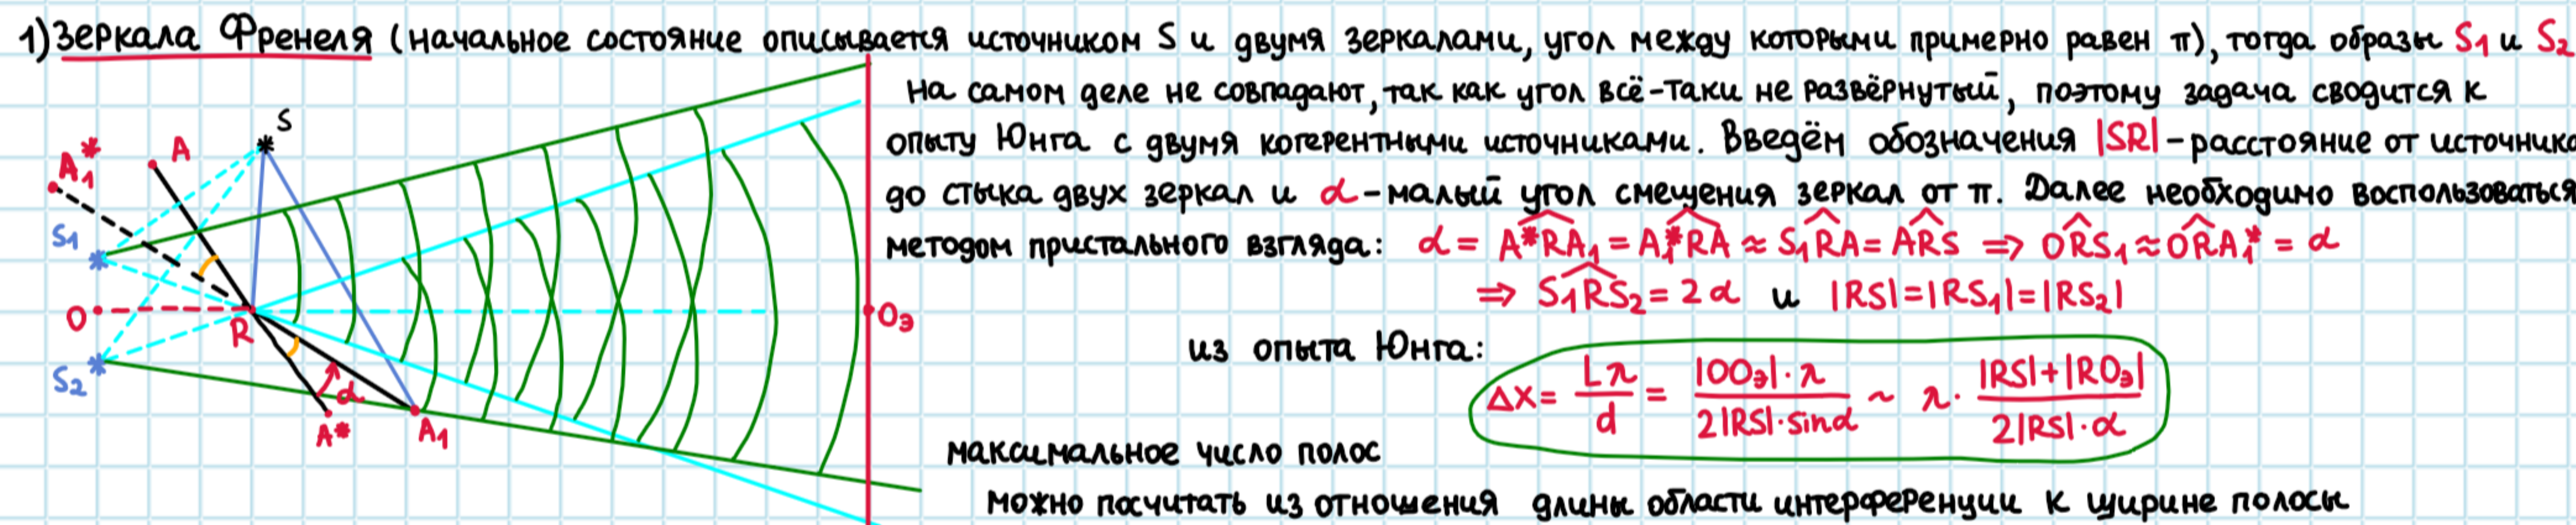 1) Зеркала Френеля (начальное состояние описывается источником S и двумя зеркалами, угол между которыми примерно равен π), тогда образы S₁ и S₂
на самом деле не совпадают, так как угол всё-таки не развёрнутый, поэтому задача сводится к
опыту Юнга с двумя когерентными источниками. Введём обозначения |SR| - расстояние от источника
до стыка двух зеркал и α - малый угол смещения зеркал от π. Далее необходимо воспользоваться
методом пристального взгляда: α = A*RA₁ = A₁*RA ≈ S₁RA = ARS ⇒ ORS₁ ≈ ORA₁* = α
⇒ S₁RS₂ = 2α и |RS| = |RS₁| = |RS₂|
из опыта Юнга: Δx = Lλ/d = |OOэ|·λ / 2|RS|·sinα ~ λ · |RS|+|ROэ| / 2|RS|·α
максимальное число полос
можно посчитать из отношения длины области интерференции к ширине полосы
S
A
A₁*
S₁
O
R
Oэ
S₂
α
A*
A₁